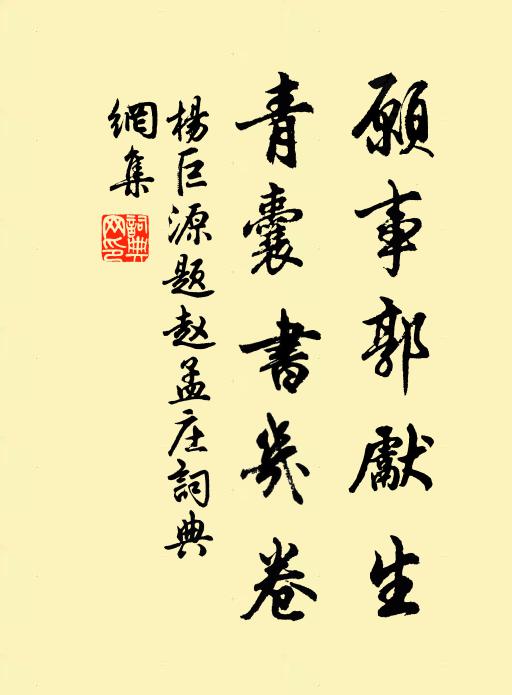 願事郭獻生
青囊書幾卷
楊巨源题赵孟庄詞典
網集
詞典
网印